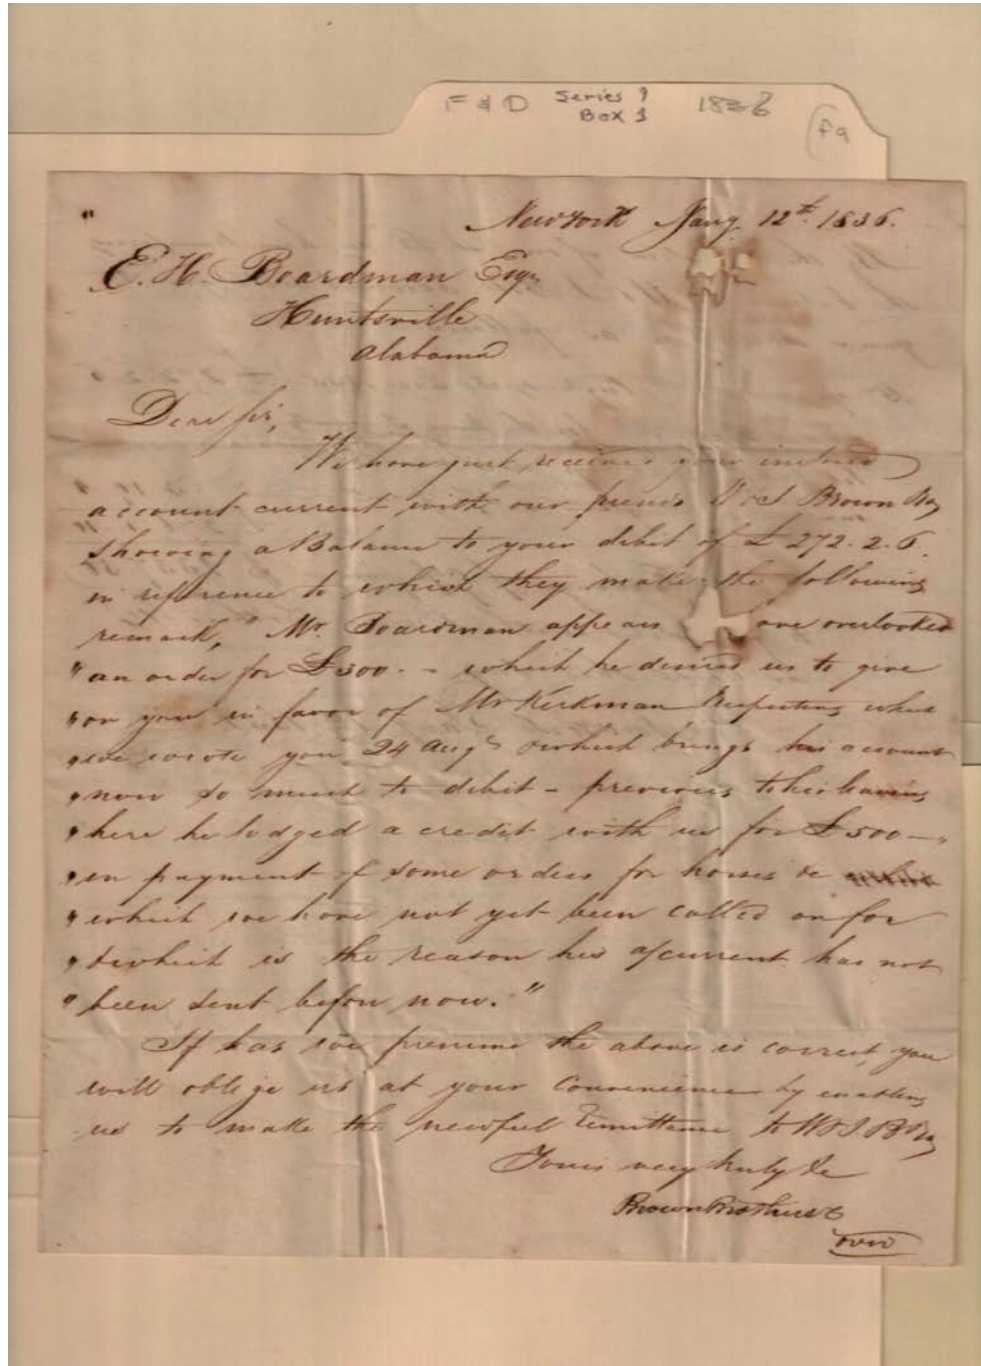 F & D Series 9 1836
Box 1
f9
" New York Jany. 12th. 1836.
E. H. Boardman Esqr
Huntsville
Alabama
Dear Sir,
We have just received your
account current with our friends W & J Brown & Co
showing a Balance to your debit of £272.2.6.
in reference to which they make the following
remark, " Mr. Boardman appears ave overlooked
" an order for £300. - which he desired us to give
" on you in favor of Mr Kirkman respecting
" we wrote you 24 Augt which brings his account
" now so much to debit - previous to his leaving
" here he lodged a credit with us for £500 - "
" in payment of some orders for horses &c
" which we have not yet been called on for
" & which is the reason his a/current has not
" been sent before now. "
If as we presume the above is correct, you
will oblige us at your convenience by enabling
us to make the needful remittance to W & J B & Co
Yours very truly &c
Brown Brothers & Co
over